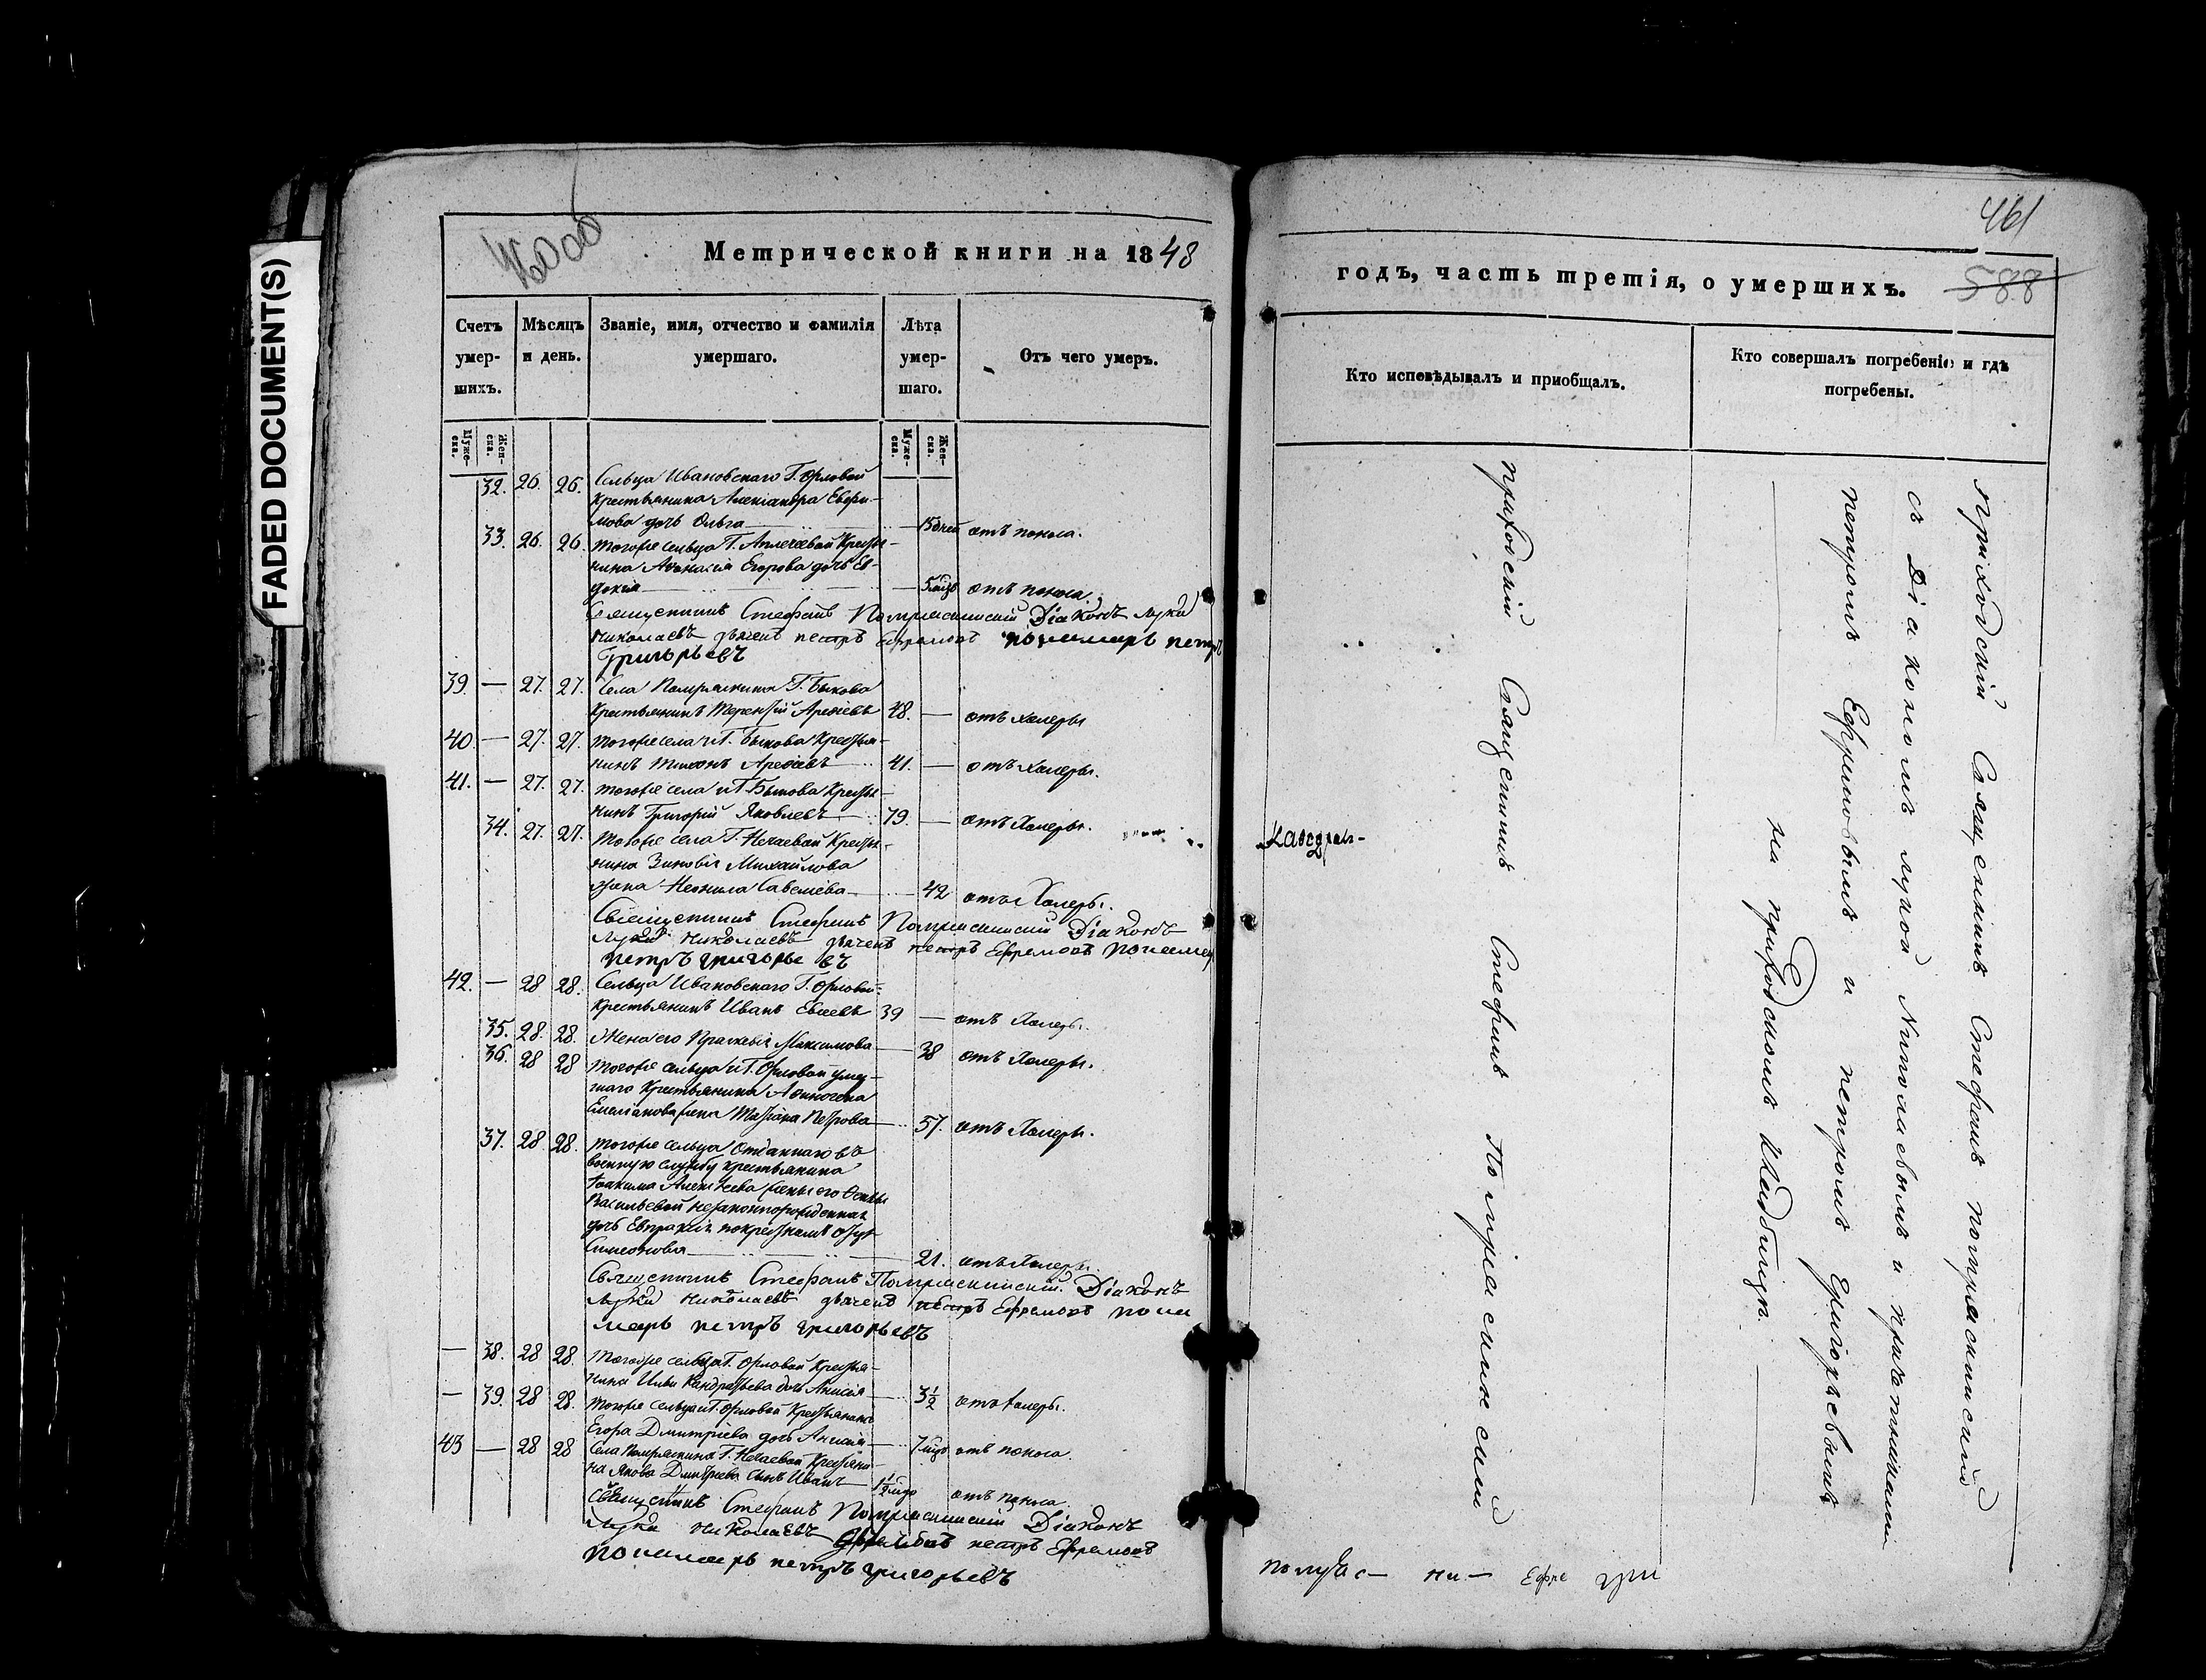 FADED DOCUMENT(S)
Метрической книги на 1848
Счетъ умер-шихъ.
Мѣсяцъ и день.
Званіе, имя, отчество и фамилія умершаго.
Лѣта умер-шаго.
Отъ чего умеръ.
Муже-ска.
Жен-ска.
Муже-ска.
Жен-ска.
32. 26. 26. Сельца Ивановскаго Г. Орловой
крестьянина Александра Ефри-
мова дочь Ольга — 15 дней отъ поноса.
33. 26. 26. тогоже сельца Г. Крестья-
нина Аѳанасія Егорова дочь Ев-
докія — 5 отъ поноса.
Священникъ Стефанъ Діаконъ Лука
Николаевъ дьячекъ петръ Ефремовъ пономарь петръ
Григорьевъ
39. — 27. 27. Села Г. Быкова
Крестьянинъ Терентій 48. — отъ холеры
40. — 27. 27. тогоже села и Г. Быкова Крестья-
нинъ 41. — отъ холеры.
41. — 27. 27. тогоже села и Г. Быкова Крестья-
нинъ Григорій Яковлевъ 79. — отъ холеры.
34. 27. 27. тогоже села Г. Нечаевой Крестья-
нина Зиновія Михайлова
жена Неонила Савельева — 42 отъ Холеры.
Священникъ Стефанъ Діаконъ
Лука Николаевъ дьячекъ петръ Ефремовъ пономарь
петръ григорьевъ
42. — 28 28. Сельца Ивановскаго Г. Орловой
Крестьянинъ Иванъ Евсеевъ 39 — отъ Холеры.
35. 28. 28. Жена его Праскевія Максимова — 38 отъ Холеры.
36. 28 28 тогоже сельца и Г. Орловой умер-
шаго Крестьянина Аѳиногена
Емельянова жена Татіана Петрова — 57. отъ Холеры.
37. 28 28. тогоже сельца отданнаго въ
военную службу крестьянина
Іоакима Алексѣева жены его
Васильевой незаконнорожденная
дочь Евпраксія по крестному отцу
Симеонова — 21. отъ Холеры.
Священникъ Стефанъ Діаконъ
Лука Николаевъ дьячекъ петръ Ефремовъ поно
марь петръ григорьевъ
— 38. 28 28. Тогоже сельца Г. Орловой Крестья-
нина Ильи Кандратьева дочь Анисія — 3½ отъ холеры.
— 39. 28 28. тогоже сельца и Г. Орловой Крестьянина
Егора Дмитріева дочь Анисія — 7 отъ поноса.
43 — 28 28 Села Г. Нечаевой Крестьяни-
на Якова Дмитріева сынъ Иванъ — 1½ отъ поноса.
Священникъ Стефанъ Діаконъ
Лука Николаевъ петръ Ефремовъ
пономарь петръ григорьевъ
461
588
годъ, часть третія, о умершихъ.
Кто исповѣдывалъ и приобщалъ.
Кто совершалъ погребеніе и гдѣ погребены.
приходскій Священникъ Стефанъ
приходскій Священникъ Стефанъ
съ Діакономъ Лукой Николаевымъ и причетниками
петромъ Ефримовымъ и петромъ Григорьевымъ
на приходскомъ кладбищѣ.
ни — Ефре гри